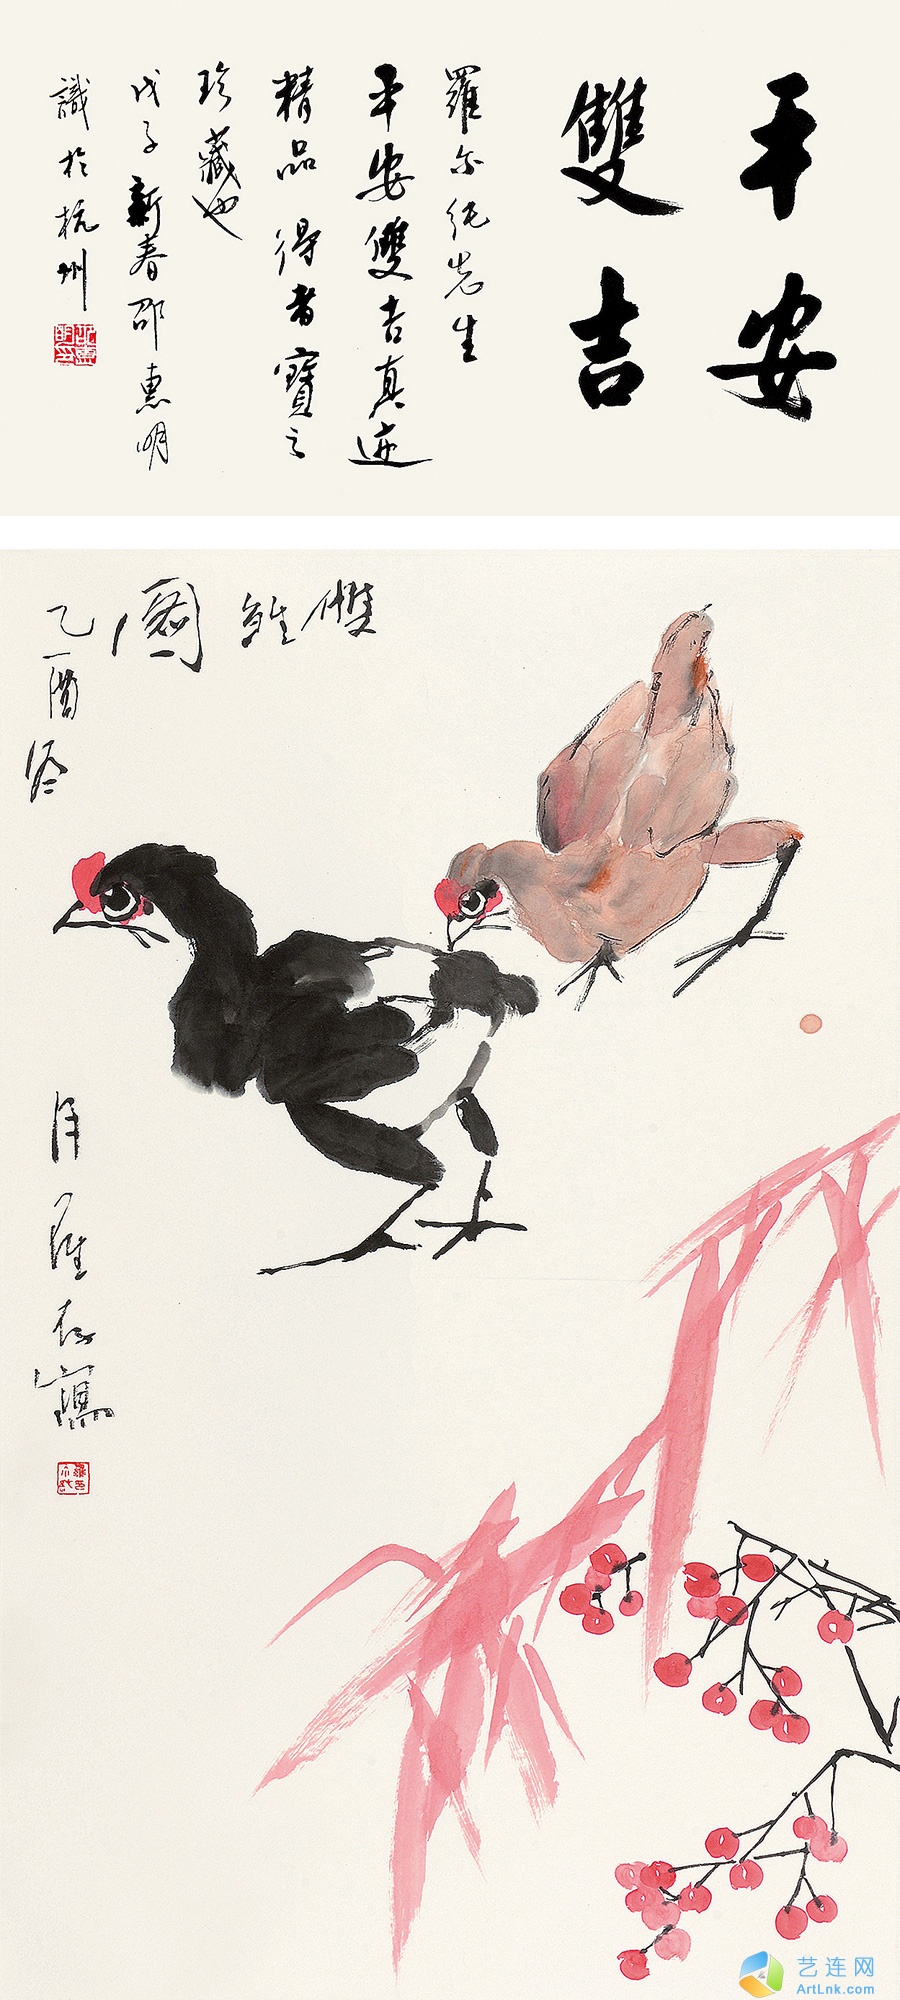 平安
雙吉
羅尔纯先生
平安雙吉真迹
精品得者寶之
珍藏也
戊子新春邵惠明
識於杭州
雙雏圖
乙酉冬
月
寫
艺连网
ArtLnk.com